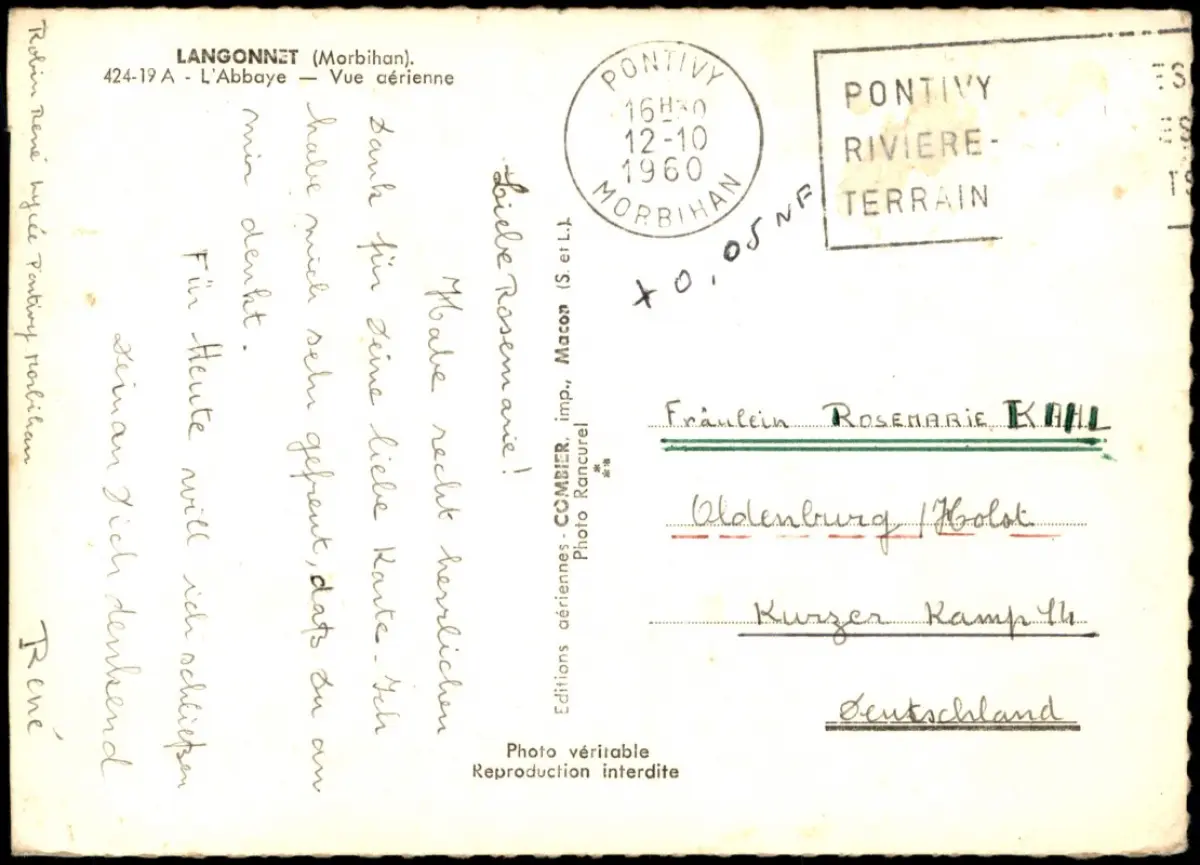 LANGONNET (Morbihan).
424-19 A - L'Abbaye — Vue aérienne
Robin René Lycée Pontivy Morbihan
Liebe Rosemarie!
Habe recht herzlichen
Dank für Deine liebe Karte. Ich
habe mich sehr gefreut, daß Du an
mir denkt.
Für Heute will ich schließen
Dich denkend
René
Editions aériennes - COMBIER, imp., Macon (S. et L.).
Photo Rancurel
Photo véritable
Reproduction interdite
PONTIVY
16H30
12-10
1960
MORBIHAN
PONTIVY
RIVIERE-
TERRAIN
+ 0,05 NF
Fräulein ROSEMARIE KAHL
Oldenburg / Holst
Kurzer Kamp 14
Deutschland